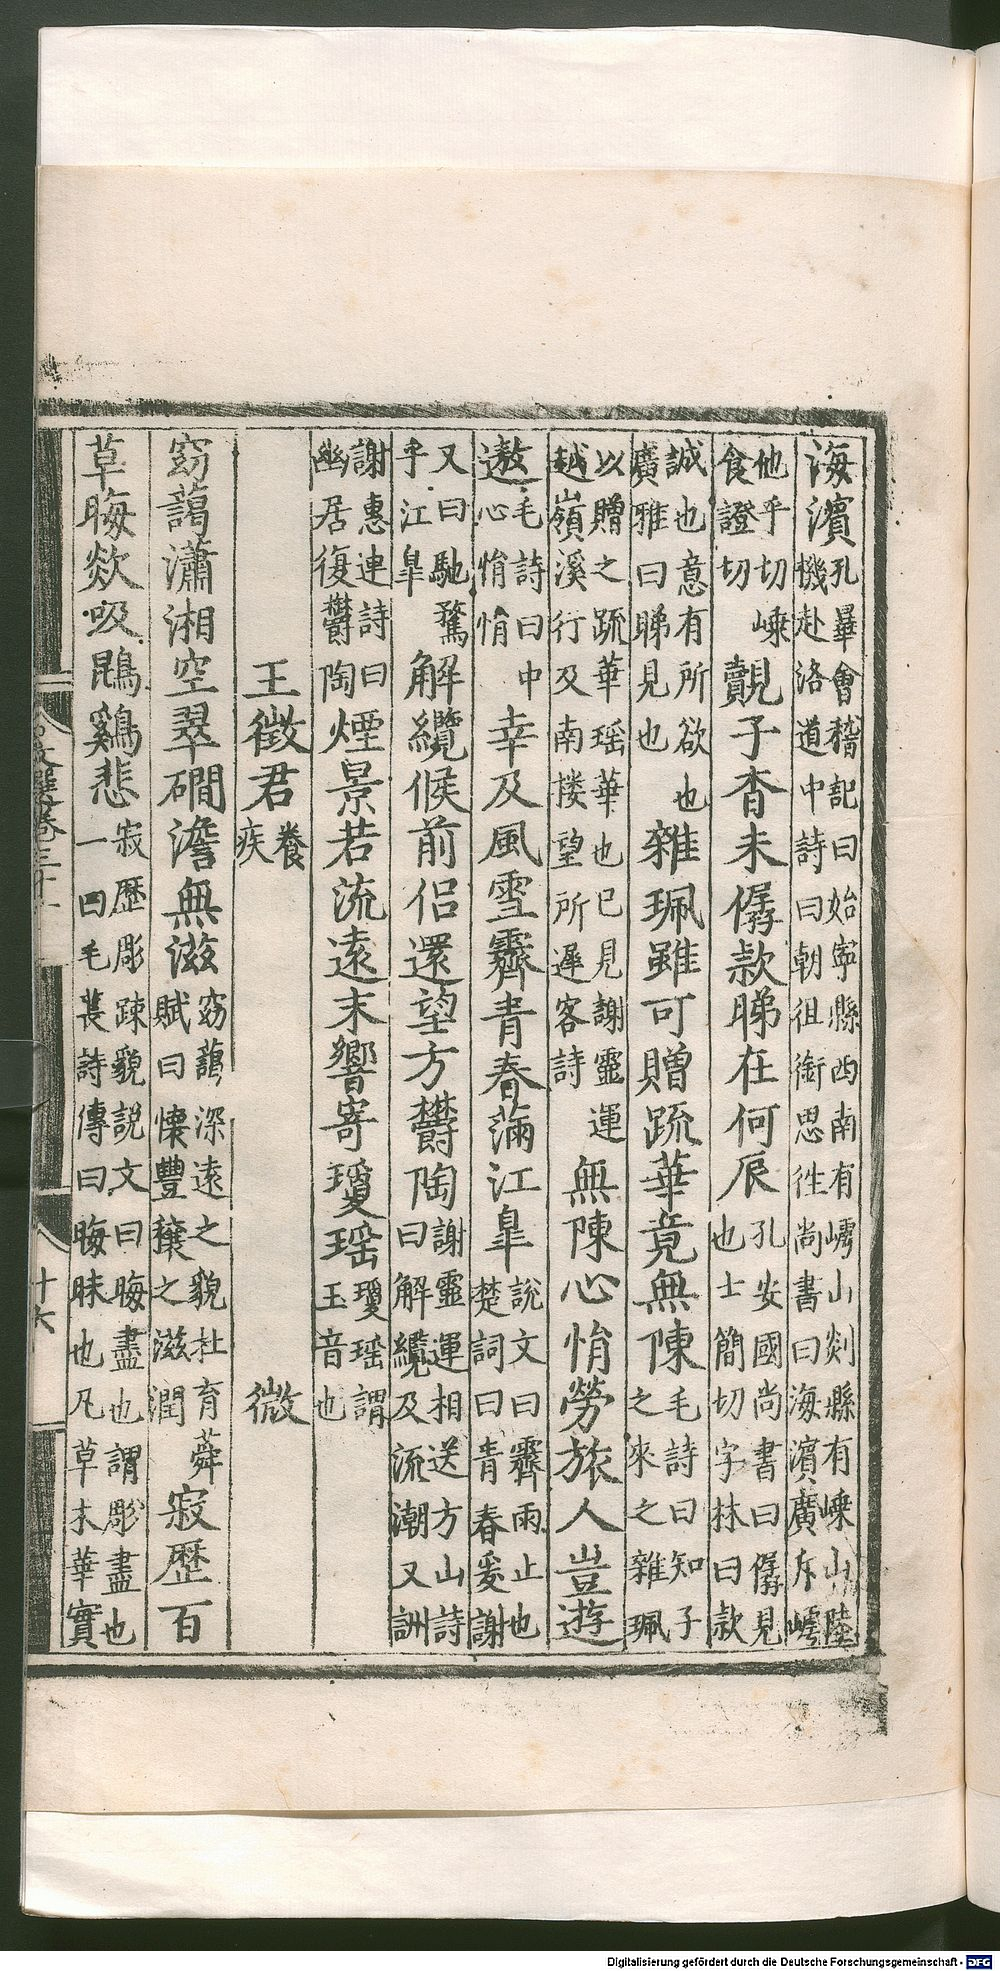 海濱孔畢會稽記曰始寧縣西南有嶀山剡縣有嵊山陸
機赴洛道中詩曰朝徂銜思往尚書曰海濱廣斥嶀
他乎切嵊
食證切覿子杳未僝款睇在何辰孔安國尚書曰僝見
也士簡切字林曰款
誠也意有所欲也
廣雅曰睇見也雜珮雖可贈疏華竟無陳毛詩曰知子
之來之雜珮
以贈之疏華瑶華也已見謝靈運
越嶺溪行及南樓望所遲客詩無陳心悁勞旅人豈遊
遨毛詩曰中
心悁悁幸及風雪霽青春滿江皐說文曰霽雨止也
楚詞曰青春爰謝
又曰馳騖
乎江皐解纜候前侣還望方鬱陶謝靈運相送方山詩
曰解纜及流潮又詶
謝惠連詩曰
幽居復鬱陶煙景若流遠末響寄瓊瑶瓊瑶謂
玉音也
王徵君養
疾微
窈藹瀟湘空翠磵澹無滋窈藹深遠之貌杜育荈
賦曰懷豐穣之滋潤寂歴百
草晦欻吸鵾鷄悲寂歴彫踈貌說文曰晦盡也謂彫盡也
一曰毛萇詩傳曰晦昧也凡草木華實
文選卷三十一
十六
Digitalisierung gefördert durch die Deutsche Forschungsgemeinschaft - DFG